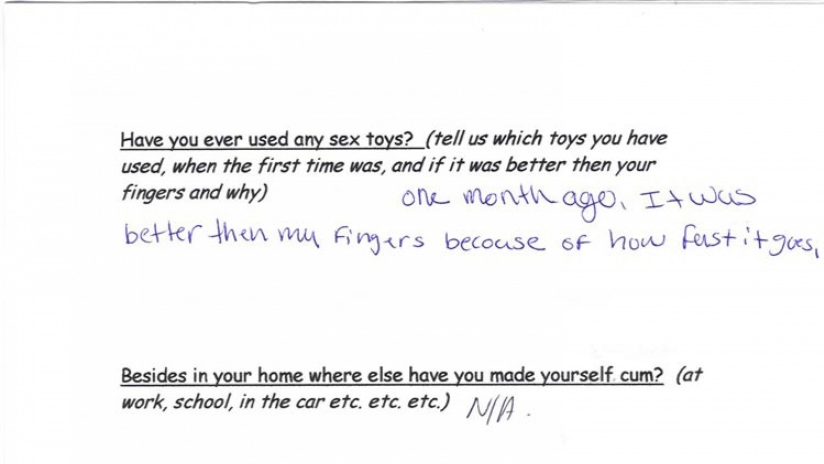 Have you ever used any sex toys? (tell us which toys you have
used, when the first time was, and if it was better then your
fingers and why) one month ago. It was
better then my fingers becouse of how fast it goes,
Besides in your home where else have you made yourself cum? (at
work, school, in the car etc. etc. etc.) N/A.